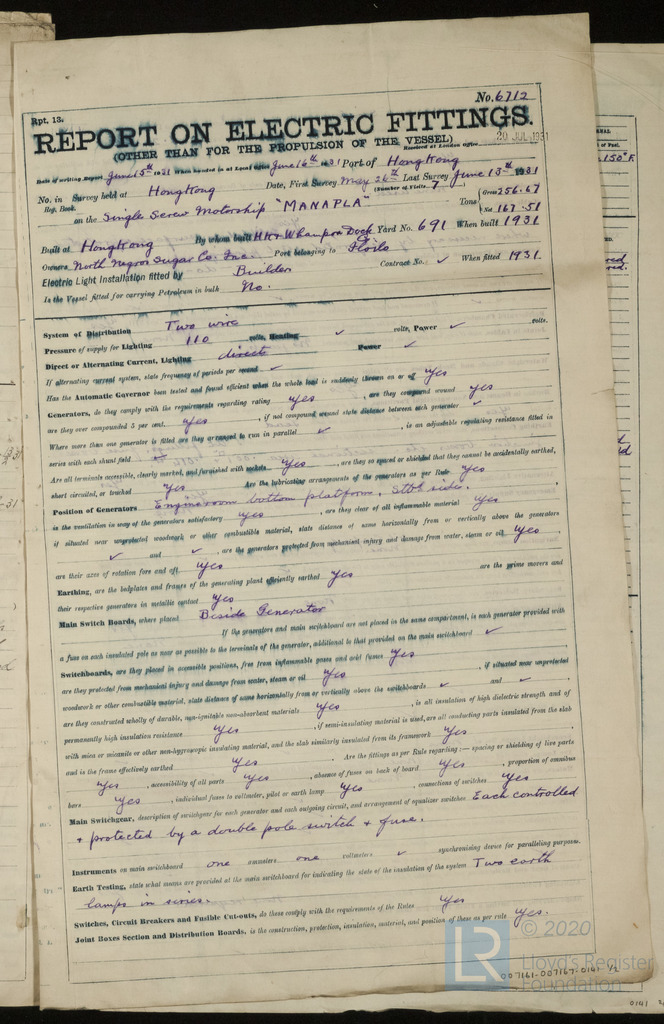 Rpt. 13.
No. 6712
REPORT ON ELECTRIC FITTINGS.
(OTHER THAN FOR THE PROPULSION OF THE VESSEL)
20 JUL 1931
Received at London Office
Date of writing Report June 15th 1931 When handed in at Local Office June 16th 1931 Port of Hongkong
No. in Survey held at Hongkong Date, First Survey May 26th Last Survey June 13th 1931
Reg. Book. (Number of Visits 7)
on the Single Screw Motorship "MANAPLA" Tons Gross 256.67 Net 167.51
Built at Hongkong By whom built HK & Whampoa Dock Yard No. 691 When built 1931
Owners North Negros Sugar Co. Inc. Port belonging to Iloilo
Electric Light Installation fitted by Builder Contract No. ✓ When fitted 1931.
Is the Vessel fitted for carrying Petroleum in bulk No.
System of Distribution Two wire
Pressure of supply for Lighting 110 volts, Heating ✓ volts, Power ✓ volts.
Direct or Alternating Current, Lighting direct Power ✓
If alternating current system, state frequency of periods per second ✓
Has the Automatic Governor been tested and found efficient when the whole load is suddenly thrown on or off Yes
Generators, do they comply with the requirements regarding rating yes, are they compound wound yes
are they over compounded 5 per cent. yes, if not compound wound state distance between each generator ✓
Where more than one generator is fitted are they arranged to run in parallel ✓, is an adjustable regulating resistance fitted in
series with each shunt field
Are all terminals accessible, clearly marked, and furnished with sockets Yes, are they so spaced or shielded that they cannot be accidentally earthed,
short circuited, or touched Yes Are the lubricating arrangements of the generators as per Rule Yes
Position of Generators Engineroom bottom platform, Stbd side.
is the ventilation in way of the generators satisfactory yes, are they clear of all inflammable material yes
if situated near unprotected woodwork or other combustible material, state distance of same horizontally from or vertically above the generators
✓ and ✓, are the generators protected from mechanical injury and damage from water, steam or oil yes,
are their axes of rotation fore and aft yes
Earthing, are the bedplates and frames of the generating plant efficiently earthed Yes are the prime movers and
their respective generators in metallic contact Yes
Main Switch Boards, where placed Beside Generator
If the generators and main switchboard are not placed in the same compartment, is each generator provided with
a fuse on each insulated pole as near as possible to the terminals of the generator, additional to that provided on the main switchboard ✓
Switchboards, are they placed in accessible positions, free from inflammable gases and acid fumes Yes
are they protected from mechanical injury and damage from water, steam or oil Yes, if situated near unprotected
woodwork or other combustible material, state distance of same horizontally from or vertically above the switchboards ✓ and ✓,
are they constructed wholly of durable, non-ignitable non-absorbent materials Yes, is all insulation of high dielectric strength and of
permanently high insulation resistance Yes, if semi-insulating material is used, are all conducting parts insulated from the slab
with mica or micanite or other non-hygroscopic insulating material, and the slab similarly insulated from its framework Yes,
and is the frame effectively earthed Yes. Are the fittings as per Rule regarding:— spacing or shielding of live parts
Yes, accessibility of all parts Yes, absence of fuses on back of board Yes, proportion of omnibus
bars Yes, individual fuses to voltmeter, pilot or earth lamp Yes, connections of switches Yes
Main Switchgear, description of switchgear for each generator and each outgoing circuit, and arrangement of equalizer switches Each controlled
& protected by a double pole switch & fuse.
Instruments on main switchboard one ammeters one voltmeters ✓ synchronising device for paralleling purposes.
Earth Testing, state what means are provided at the main switchboard for indicating the state of the insulation of the system Two earth
lamps in series.
Switches, Circuit Breakers and Fusible Cut-outs, do these comply with the requirements of the Rules Yes
Joint Boxes Section and Distribution Boards, is the construction, protection, insulation, material, and position of these as per rule yes.
© 2020
LR
Lloyd's Register
Foundation
007161-007167-0141 1/2
0141
150°F.